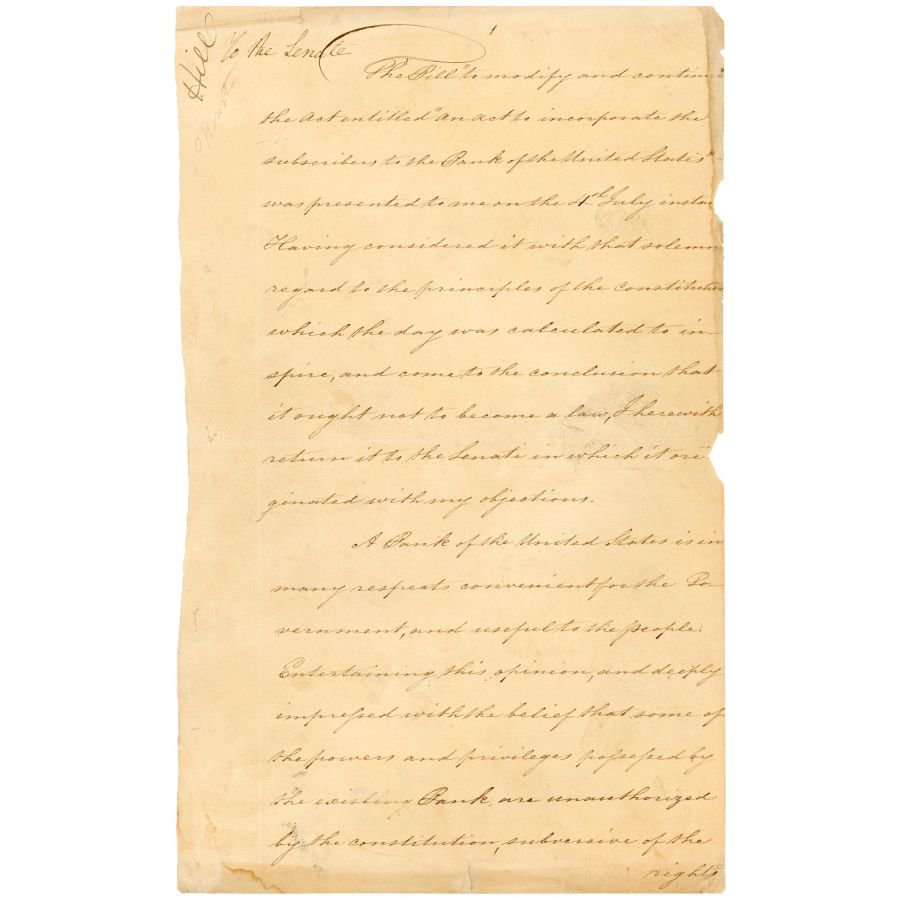 Hill
To the Senate
The Bill "to modify and continue
the act entitled "an act to incorporate the
subscribers to the Bank of the United States"
was presented to me on the 4th July instan
Having considered it with that solemn
regard to the principles of the constitution
which the day was calculated to in-
spire, and come to the conclusion that
it ought not to become a law, I herewith
return it to the Senate in which it ori
ginated with my objections.
A Bank of the United States is in
many respects convenient for the Go-
vernment, and useful to the people.
Entertaining this opinion, and deeply
impressed with the belief that some of
the powers and privileges possessed by
the existing Bank, are unauthorized
by the constitution, subversive of the
rights